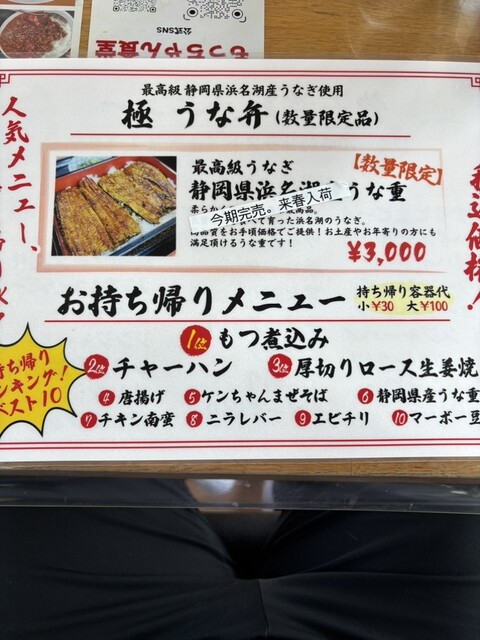 公式SNS
もっちゃん食堂
最高級 静岡県浜名湖産うなぎ使用
極 うな弁(数量限定品)
人気メニュー、
【数量限定】
最高級うなぎ
静岡県浜名湖産うな重
今期完売。来春入荷
で育った浜名湖のうなぎ。
品質をお手頃価格でご提供!お土産やお年寄りの方にも
満足頂けるうな重です!
¥3,000
お持ち帰りメニュー
持ち帰り容器代
小¥30 大¥100
持ち帰り
ンキング!
ベスト10
1位 もつ煮込み
2位 チャーハン
3位 厚切りロース生姜焼
4 唐揚げ
5 ケンちゃんまぜそば
6 静岡県産うな重
7 チキン南蛮
8 ニラレバー
9 エビチリ
10 マーボー豆